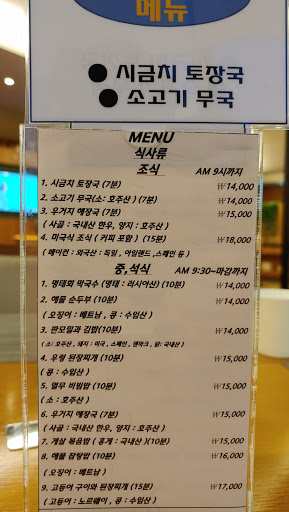 메뉴
● 시금치 토장국
● 소고기 무국
MENU
식사류
조식 AM 9시까지
1. 시금치 토장국 (7분) ₩14,000
2. 소고기 무국(소: 호주산 ) (7분) ₩14,000
3. 우거지 해장국 (7분) ₩15,000
( 사골 : 국내산 한우, 양지 : 호주산 )
4. 미국식 조식 ( 커피 포함 ) (15분) ₩18,000
( 베이컨 : 외국산 : 독일 , 아일랜드 ,스페인 등 )
중,석식 AM 9:30~마감까지
1. 명태회 막국수 (명태 : 러시아산) (10분) ₩14,000
2. 해물 순두부 (10분) ₩14,000
( 오징어 : 베트남 , 콩 : 수입산 )
3. 판모밀과 김밥(10분) ₩14,000
( 소 : 호주산 , 돼지 : 미국 , 스페인 , 덴마크 , 닭: 국내산 )
4. 우렁 된장찌개 (10분) ₩15,000
( 콩 : 수입산 )
5. 열무 비빔밥 (10분) ₩15,000
( 소 : 호주산 )
6. 우거지 해장국 (7분) ₩15,000
( 사골 : 국내산 한우, 양지 : 호주산 )
7. 게살 볶음밥 ( 홍게 : 국내산 )(10분) ₩15,000
8. 해물 잡탕밥 (10분) ₩16,000
( 오징어 : 베트남 )
9. 고등어 구이와 된장찌개 (15분) ₩17,000
( 고등어 : 노르웨이 , 콩 : 수입산 )